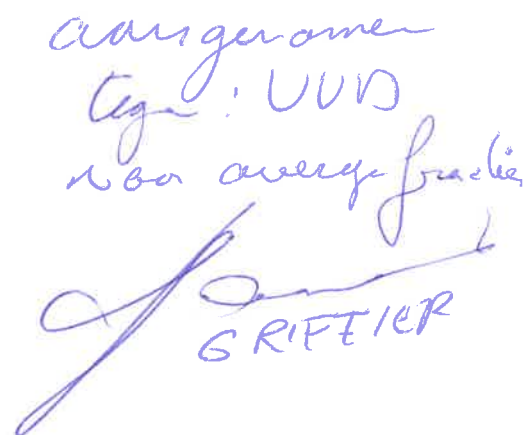 aangenomen
tegen: VVD
voor overige fracties
GRIFFIER